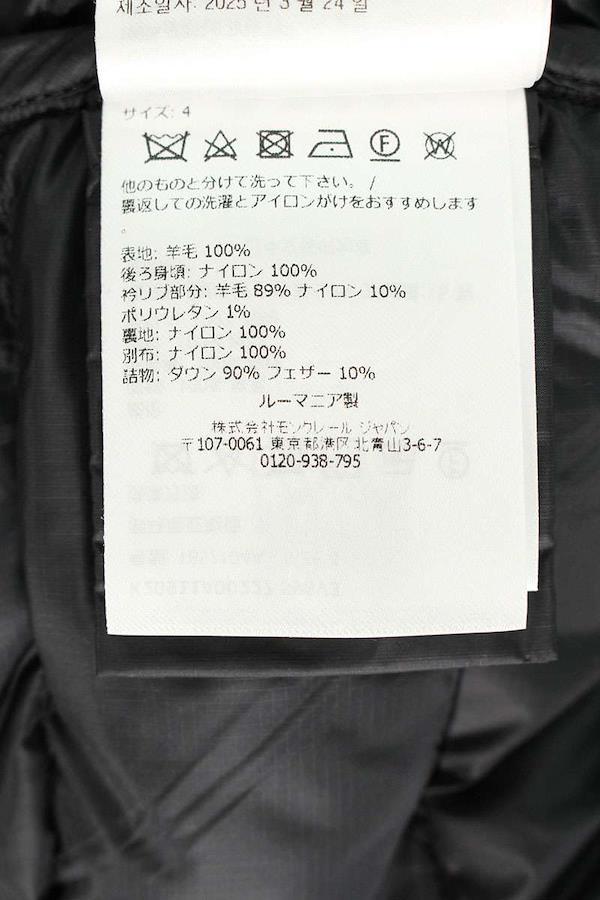 제조일자: 2025 년 3 월 24 일
サイズ: 4
他のものと分けて洗って下さい。 /
裏返しての洗濯とアイロンがけをおすすめします
。
表地: 羊毛 100%
後ろ身頃: ナイロン 100%
衿リブ部分: 羊毛 89% ナイロン 10%
ポリウレタン 1%
裏地: ナイロン 100%
別布: ナイロン 100%
詰物: ダウン 90% フェザー 10%
ルーマニア製
株式会社モンクレール ジャパン
〒107-0061 東京都港区北青山3-6-7
0120-938-795